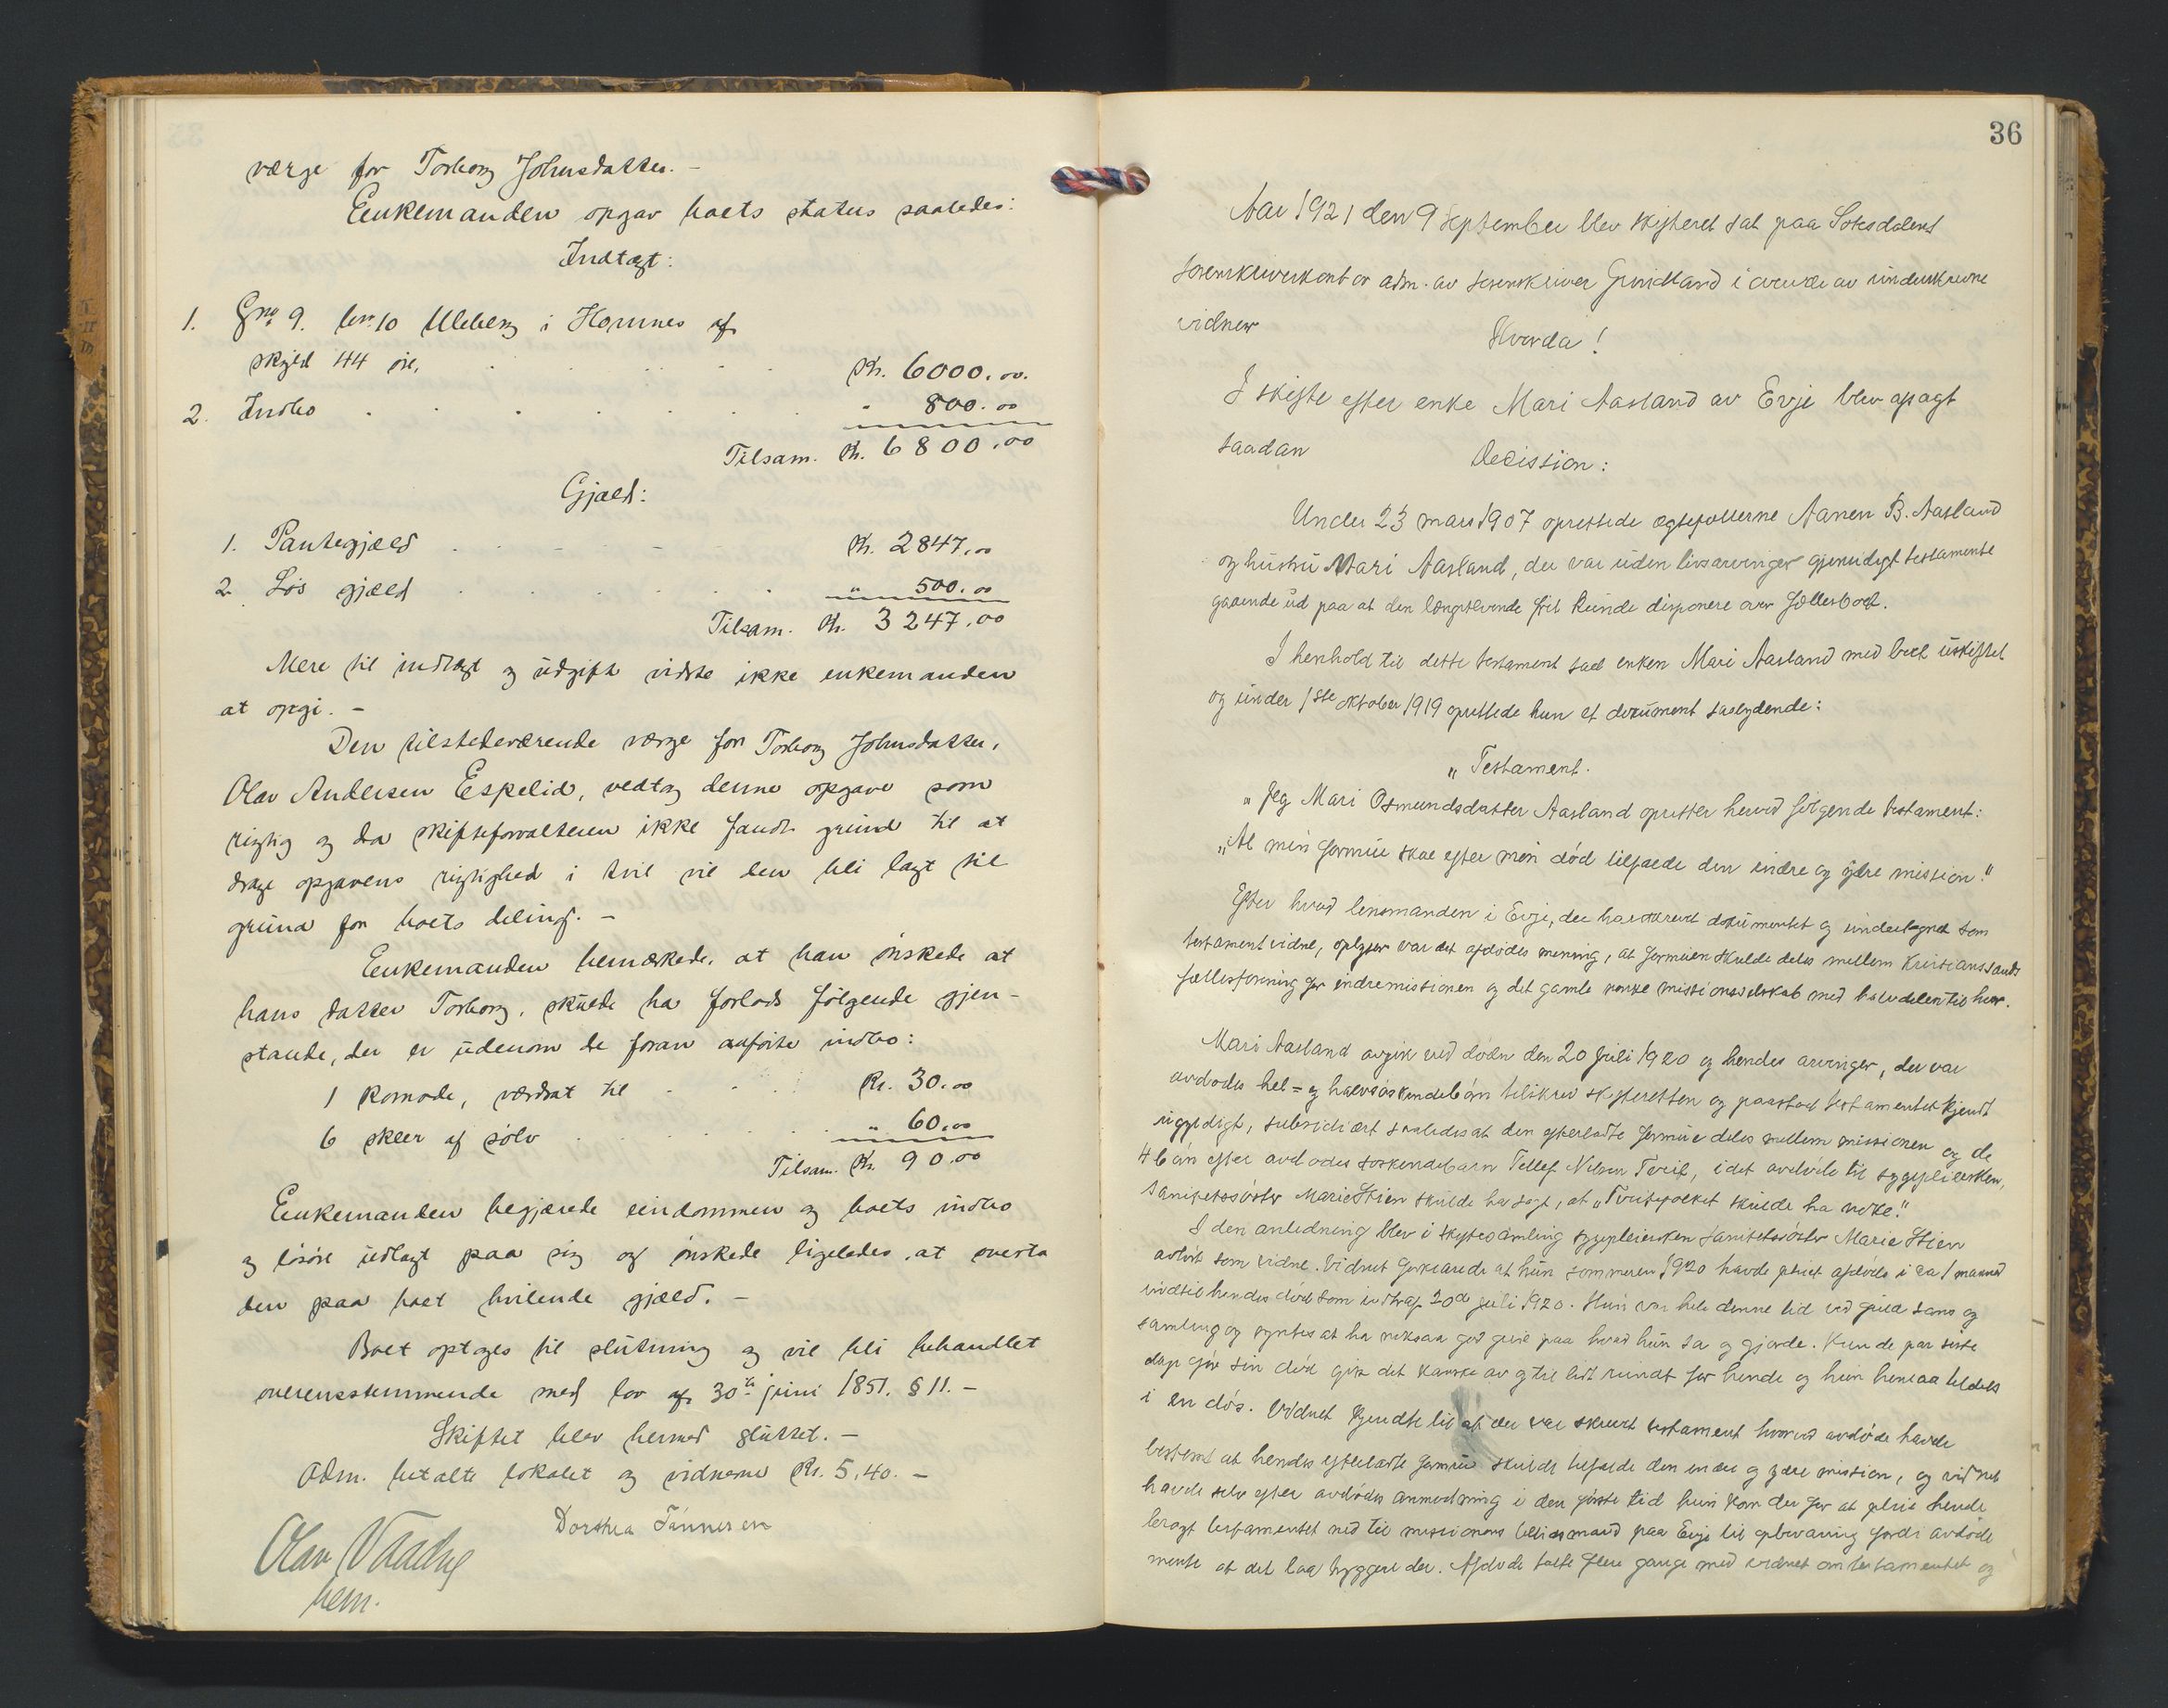 værge for Torborg Johnsdatter. –
Enkemanden opgav boets status saaledes:
Indtægt:
1. Gno 9. bno 10 Uleberg i Hornnes af
skyld 44 øre, Kr. 6000.00.
2. Indbo " 800.00
Tilsam. Kr. 6800.00
Gjæld:
1. Pantegjæld Kr. 2847.00
2. Løs gjæld " 500.00
Tilsam. Kr. 3247.00
Mere til indtægt og udgift vidste ikke enkemanden
at opgi. –
Den tilstedeværende værge for Torborg Johnsdatter,
Olav Andersen Espelid, vedtog denne opgave som
rigtig og da skifteforvalteren ikke fandt grund til at
drage opgavens rigtighed i tvil vil den bli lagt til
grund for boets deling. –
Enkemanden bemærkede, at han ønskede at
hans datter Torborg, skulde ha forlods følgende gjen-
stande, der er udenom de foran anførte indbo:
1 komode, værdsat til Kr. 30.00
6 skeer af sølv " 60.00
Tilsam. Kr. 90.00
Enkemanden begjærede eiendommen og boets indbo
og løsøre utlagt paa sig og ønskede ligeledes at overta
den paa boet hvilende gjæld. –
Boet optages til slutning og vil bli behandlet
overensstemmende med lov af 30te juni 1851. § 11. –
Skiftet blev hermed sluttet. –
Adm. betalte lokalet og vidnerne Kr. 5,40. –
Dorthea Tønnesen
Olav Vaadne
hem.
36
Aar 1921 den 9 september blev skifteret sat paa Setesdalens
sorenskriverkontor adm. av sorenskriver Grindland i overvær av underskrevne
vidner
Hvorda!
I skifte efter enke Mari Aasland av Evje blev avsagt
saadan
Decission:
Under 23 mars 1907 oprettede ægtefollerne Aanen B. Aasland
og hustru Mari Aasland, der var uden livsarvinger gjensidigt testamente
gaaende ud paa at den længstlevende frit kunde disponere over fællesboet.
I henhold til dette testament sad enken Mari Aasland med boet uskiftet
og under 1ste oktober 1919 oprettede hun et document saalydende:
„ Testament.
„ Jeg Mari Osmundsdatter Aasland opretter herved følgende testament:
„Al min formue skal efter min død tilfalde den indre og ydre mission."
Efter hvad lensmanden i Evje, der har skrevet dokumentet og undertegnet som
testamentvidne, oplyser var det afdødes mening, at formuen skulde deles mellem Kristianssands
fællesforening for indremissionen og det gamle norske missionsselskab med halvdelen til hver.
Mari Aasland avgik ved døden den 20 juli 1920 og hendes arvinger, der var
avdødes hel- og halvsøskendebørn tilskrev skifteretten og paastod testamentet kjendt
ugyldigt, subsidiært saaledes at den efterladte formue deles mellem missionen og de
4 børn efter avdødes søskendebarn Tellef Nilsen Tveit, idet avdøde til sygepleiersken,
sanitetssøster Marie Stien skulde ha sagt, at „Tveitefolket skulde ha noke."
I den anledning blev i skiftesamling sygepleiersken sanitetssøster Marie Stien
avhørt som vidne. Vidnet forklarede at hun sommeren 1920 havde pleiet afdøde i ca 1 maaned
indtil hendes død som indtraf 20de juli 1920. Hun var hele denne tid ved fuld sans og
samling og syntes at ha noksaa god greie paa hvad hun sa og gjorde. Kun de par siste
dage før sin død gik det kanske av og til lidt rundt for hende og hun henlaa tildels
i en døs. Vidnet kjendte til at der var skrevet testament hvorved avdøde havde
bestemt at hendes efterladte formue skulde tilfalde den indre og ydre mission, og vidnet
havde selv efter avdødes anmodning i den første tid hun kom der for at pleie hende
bragt testamentet ned til missionens tillidsmand paa Evje til opbevaring fordi avdøde
mente at det laa tryggere der. Afdøde talte flere gange med vidnet om testamentet og